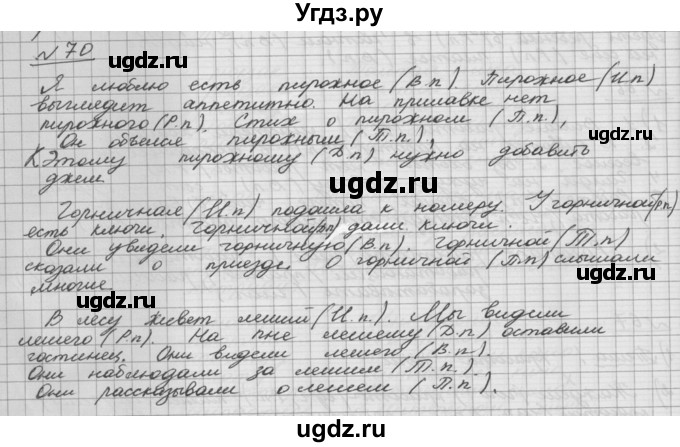 Угдз.ру
№70
Я люблю есть пирожное (В.п) Пирожное (И.п)
выглядит аппетитно. На прилавке нет
пирожного (Р.п). Стих о пирожном (П.п),
Он объелся пирожным (Т.п.),
К Этому пирожному (Д.п) нужно добавить
джем.
Горничная (И.п) подошла к номеру. У горничной (рп)
есть ключи. Горничной (дп) дали ключи.
Они увидели горничную (В.п). Горничной (Т.п)
сказали о приезде. О горничной (П.п) слышали
многие
В лесу живет леший (И.п.). Мы видели
лешего (Р.п). На пне лешему (Д.п) оставили
гостинец. Они видели лешего (В.п).
Они наблюдали за лешим (Т.п).
Они рассказывали о лешем (П.п).
ugdz.ru
ugdz.ru
ugdz.ru
ugdz.ru
ugdz.ru
ugdz.ru
ugdz.ru
ugdz.ru
ugdz.ru
ugdz.ru
ugdz.ru